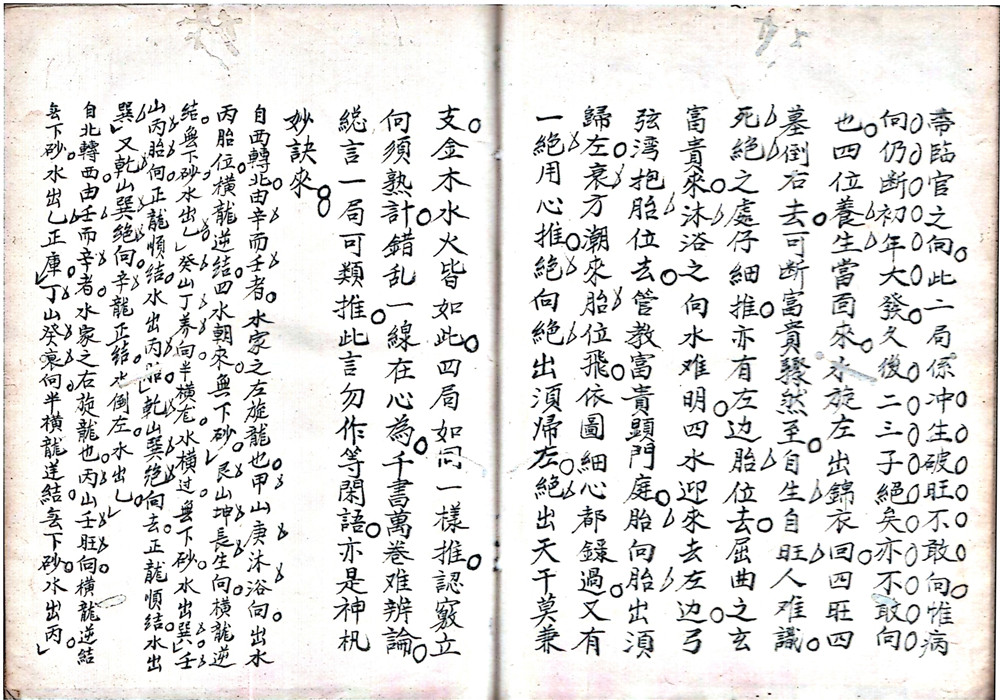 帶臨官之向此二局係冲生破旺不敢向惟病
向仍断初年大發久後二三子絕矣亦不敢向
也四位養生當面來水旋左出錦衣回四旺四
墓倒右去可断富貴驟然至自生自旺人难識
死絕之處仔細推亦有左边胎位去屈曲之玄
富貴來沐浴之向水难明四水迎來去左边弓
弦湾抱胎位去管教富貴顕門庭胎向胎出須
歸左衰方潮來胎位飛依圖細心都錄過又有
一絕用心推絕向絕出須帰左絕出天干莫兼
支金木水火皆如此四局如同一樣推認竅立
向須熟計錯乱一線在心為千書萬卷难辨論
総言一局可類推此言勿作等閑語亦是神机
妙訣來
自西轉北由辛而壬者水家之左旋龍也甲山庚沐浴向出水
丙胎位橫龍逆結四水朝來無下砂艮山坤長生向橫龍逆
結無下砂水出乙癸山丁養向半橫左水橫过無下砂水出巽壬
山丙胎向正龍順結水出丙胎乾山巽絕向去正龍順結水出
巽又乾山巽絕向辛龍正結水倒左水出乙
自北轉西由壬而辛者水家之右旋龍也丙山壬旺向橫龍逆結
無下砂水出乙正庫丁山癸衰向半橫龍逆結無下砂水出丙